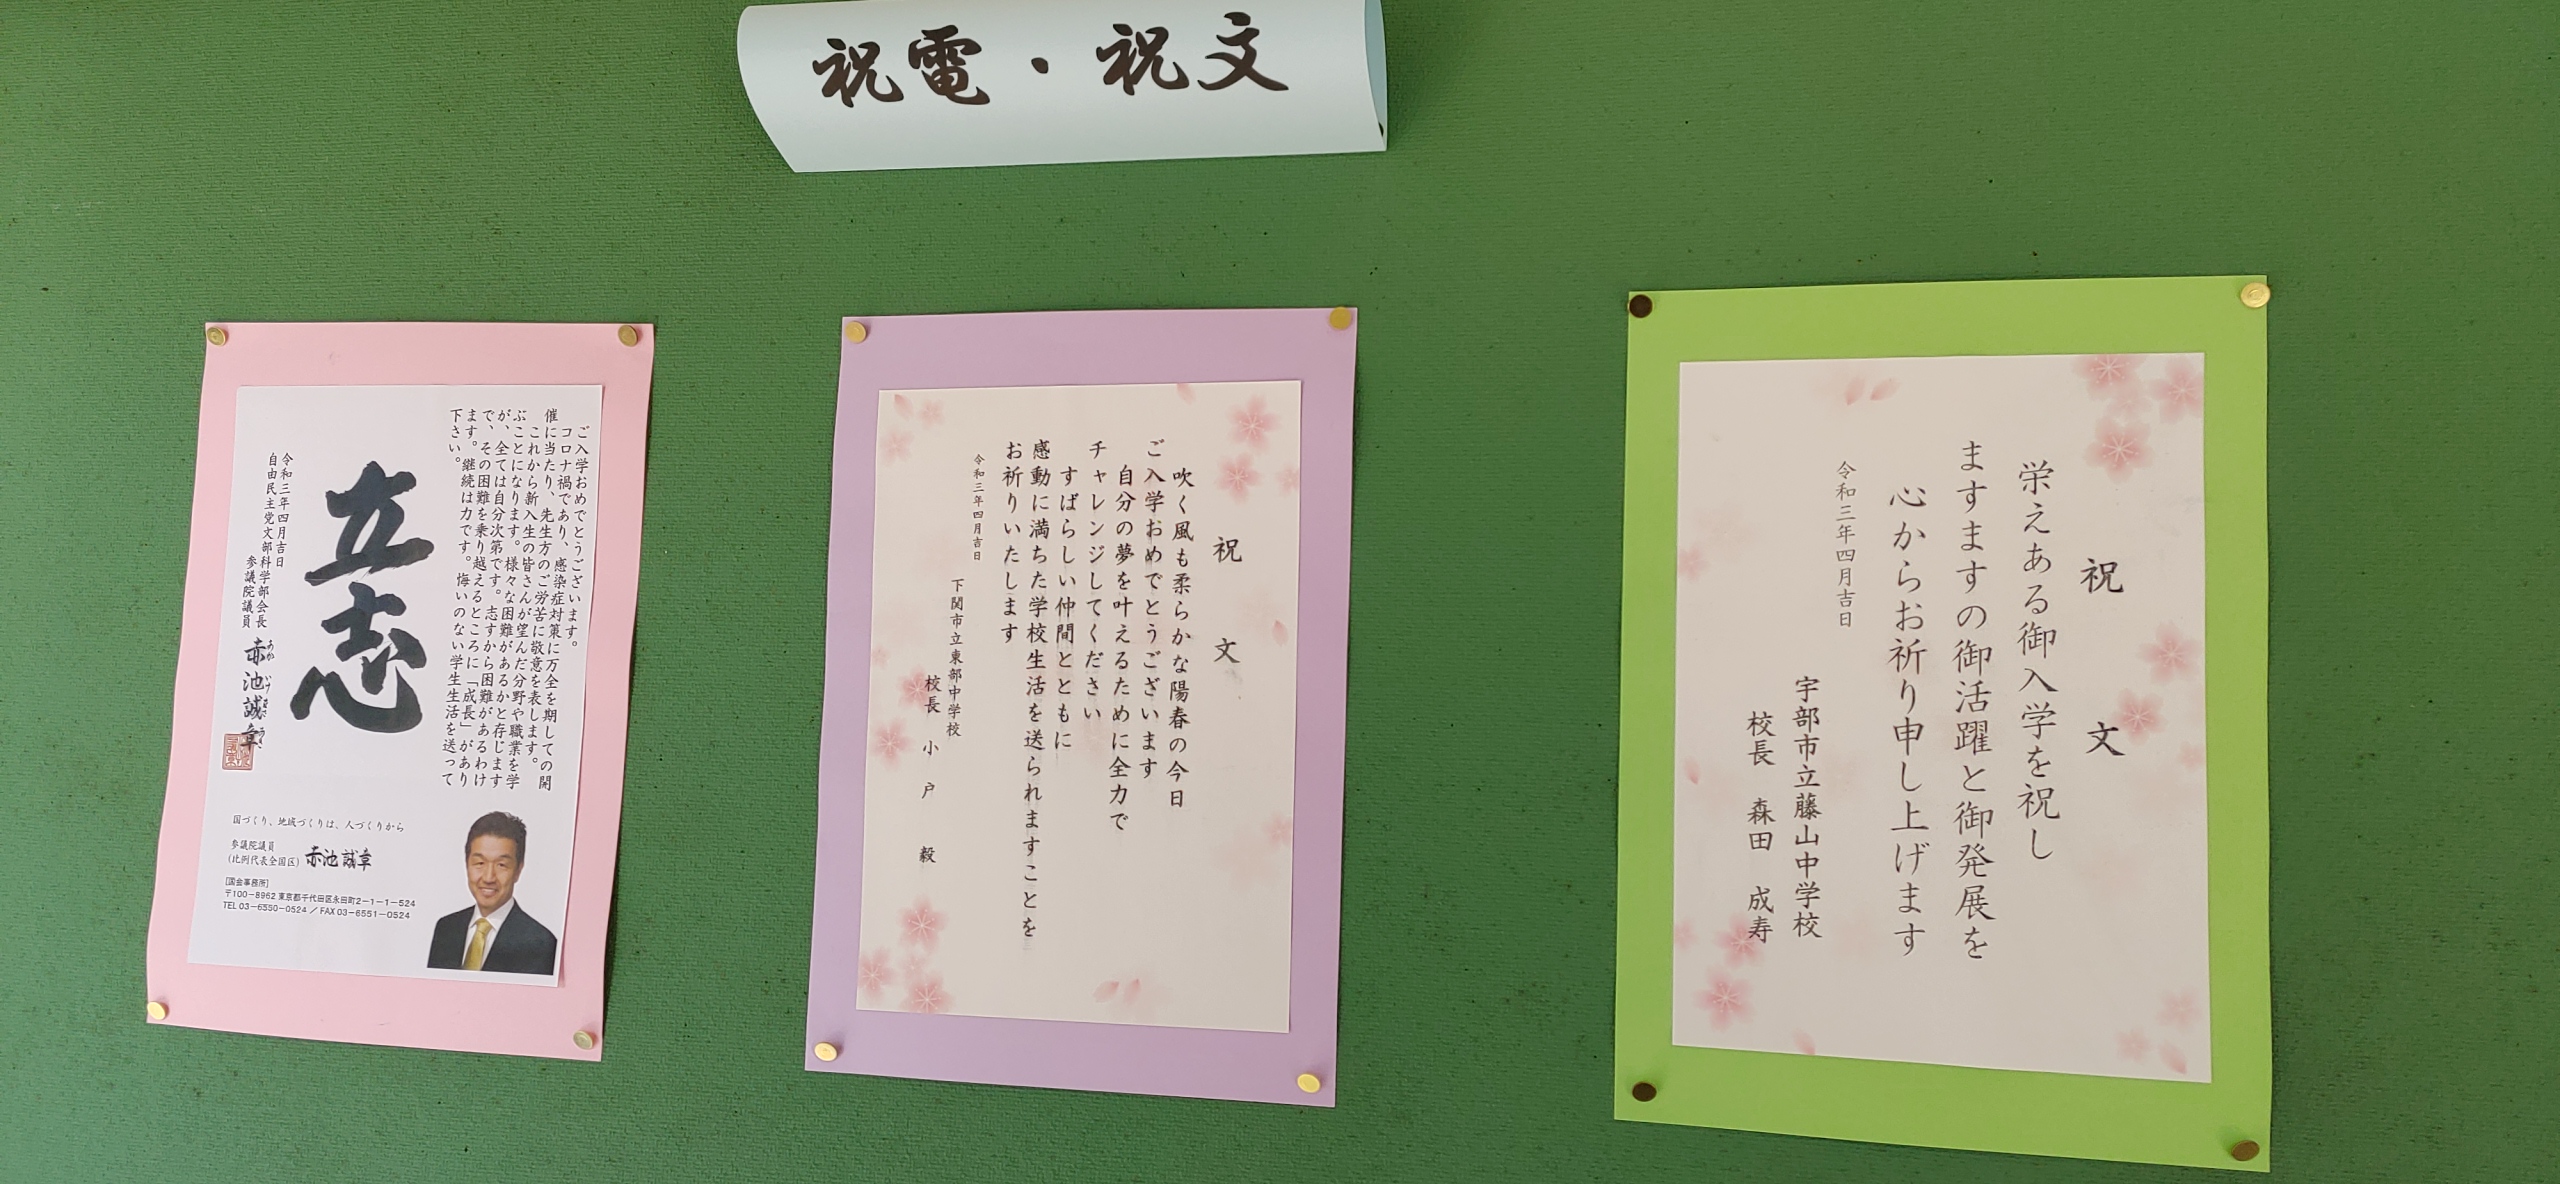 祝電・祝文
ご入学おめでとうございます。
コロナ禍であり、感染症対策に万全を期しての開
催に当たり、先生方のご労苦に敬意を表します。
これから新入生の皆さんが望んだ分野や職業を学
ぶことになります。様々な困難があるかと存じます
が、全ては自分次第です。志すから困難があるわけ
で、その困難を乗り越えるところに「成長」があり
ます。継続は力です。悔いのない学生生活を送って
下さい。
立志
令和三年四月吉日
自由民主党文部科学部会長
参議院議員 赤池誠章
あか いけ まさ あき
国づくり、地域づくりは、人づくりから
参議院議員
(比例代表全国区) 赤池誠章
[国会事務所]
〒100-8962 東京都千代田区永田町2-1-1-524
TEL 03-6550-0524 / FAX 03-6551-0524
祝文
吹く風も柔らかな陽春の今日
ご入学おめでとうございます
自分の夢を叶えるために全力で
チャレンジしてください
すばらしい仲間とともに
感動に満ちた学校生活を送られますことを
お祈りいたします
令和三年四月吉日
下関市立東部中学校
校長 小戸 毅
祝文
栄えある御入学を祝し
ますますの御活躍と御発展を
心からお祈り申し上げます
令和三年四月吉日
宇部市立藤山中学校
校長 森田 成寿